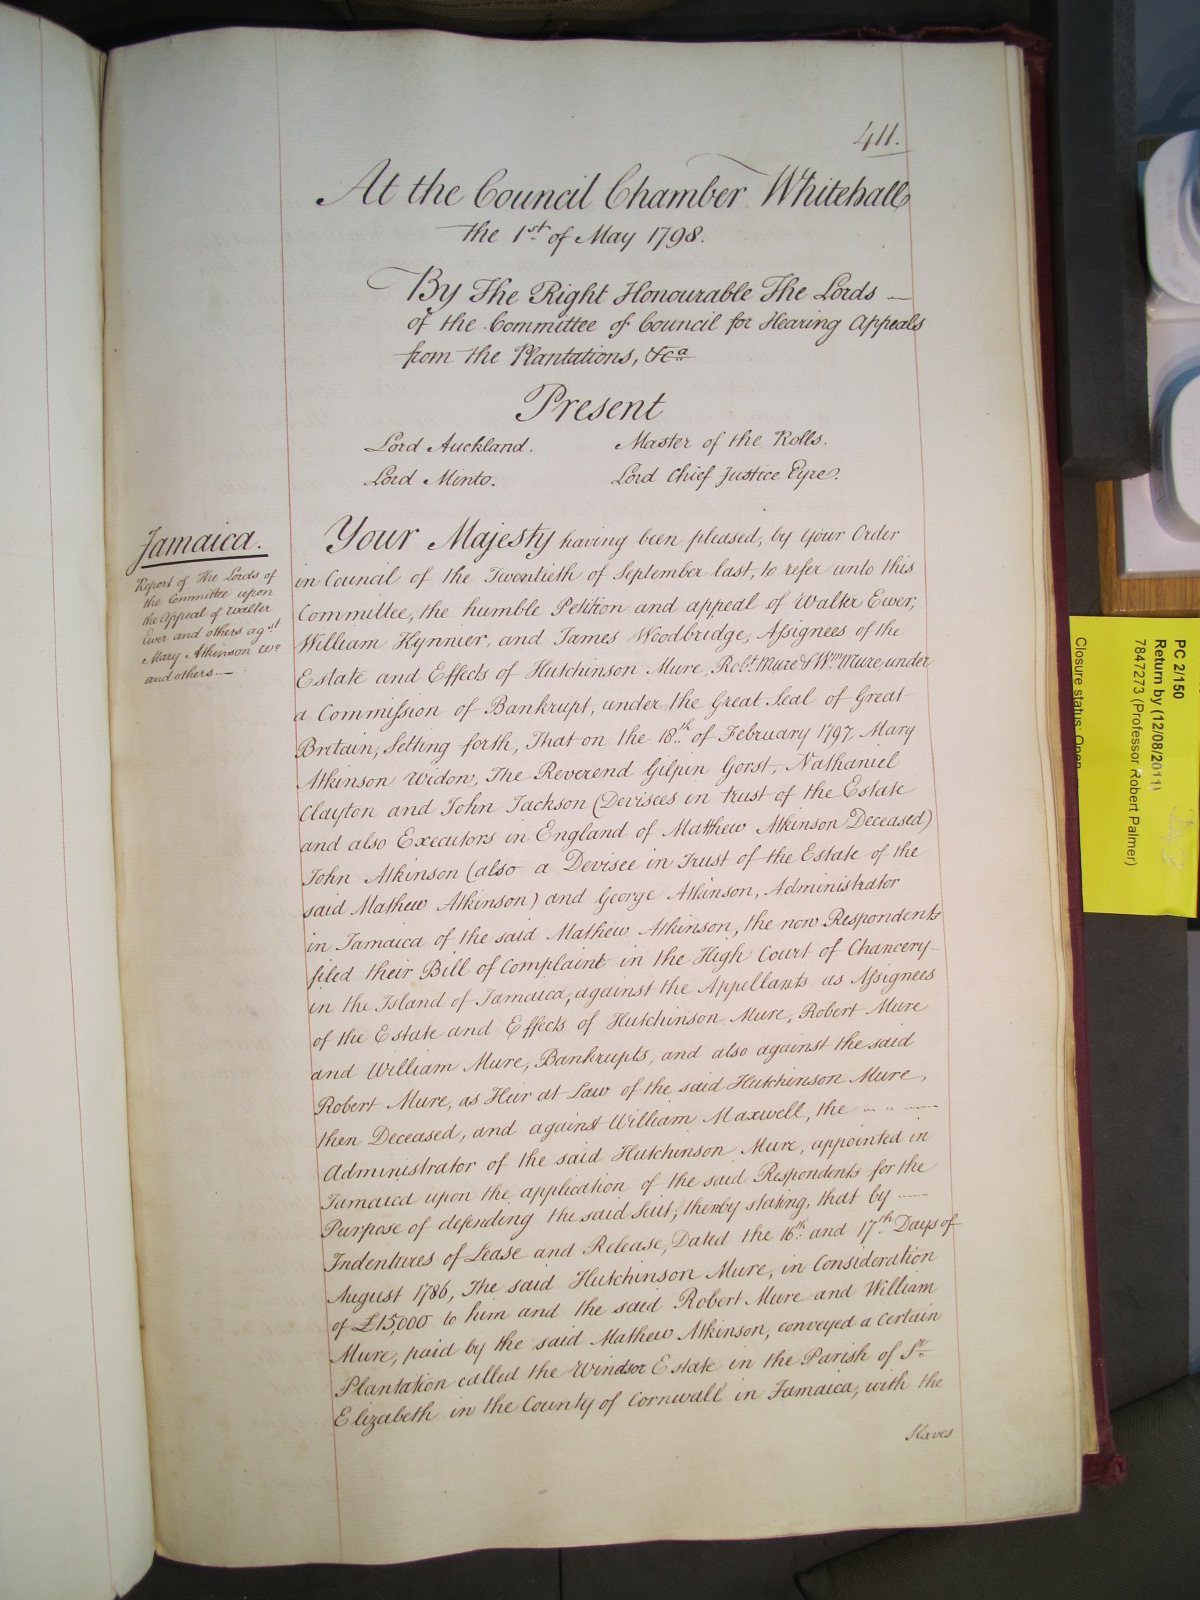 411.
At the Council Chamber Whitehall
the 1st. of May 1798.
By The Right Honourable The Lords
of the Committee of Council for Hearing Appeals
from the Plantations, &ca
Present
Lord Auckland. Master of the Rolls.
Lord Minto. Lord Chief Justice Eyre.
Jamaica.
Report of the Lords of
the Committee upon
the Appeal of Walter
Ewer and others agst
Mary Atkinson Wo
and others —
Your Majesty having been pleased, by Your Order
in Council of the Twentieth of September last, to refer unto this
Committee, the humble Petition and appeal of Walter Ewer,
William Hynnier, and James Woodbridge, Assignees of the
Estate and Effects of Hutchinson Mure, Robt. Mure & Wm. Mure under
a Commission of Bankrupt, under the Great Seal of Great
Britain; Setting forth, That on the 18th. of February 1797, Mary
Atkinson Widow, The Reverend Gilpin Gorst, Nathaniel
Clayton and John Jackson (Devisees in trust of the Estate
and also Executors in England of Matthew Atkinson Deceased)
John Atkinson (also a Devisee in Trust of the Estate of the
said Mathew Atkinson) and George Atkinson, Administrator
in Jamaica of the said Mathew Atkinson, the now Respondents
filed their Bill of Complaint in the High Court of Chancery
in the Island of Jamaica, against the Appellants as Assignees
of the Estate and Effects of Hutchinson Mure, Robert Mure
and William Mure, Bankrupts, and also against the said
Robert Mure, as Heir at Law of the said Hutchinson Mure,
then Deceased, and against William Maxwell, the
Administrator of the said Hutchinson Mure, appointed in
Jamaica upon the application of the said Respondents for the
Purpose of defending the said Suit; thereby stating, that by
Indentures of Lease and Release, Dated the 16th. and 17th. Days of
August 1786, The said Hutchinson Mure, in Consideration
of £15,000 to him and the said Robert Mure and William
Mure, paid by the said Mathew Atkinson, conveyed a certain
Plantation called the Windsor Estate in the Parish of St.
Elizabeth in the County of Cornwall in Jamaica, with the
Slaves
PC 2/150
Return by (12/08/2011)
7847273 (Professor Robert Palmer)
Closure status: Open